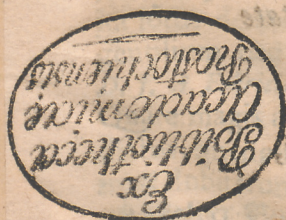 Ex
Bibliotheca
Academicæ
Rostochiensis